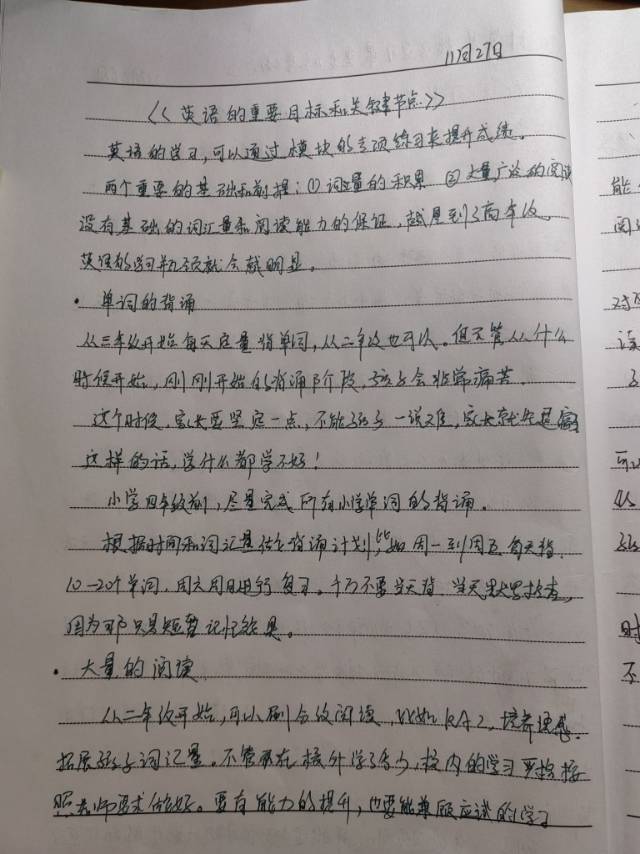 11月27日
《〈英语的重要目标和关键节点〉》
英语的学习,可以通过模块的专项练习来提升成绩。
两个重要的基础和前提:①词汇量的积累 ②大量广泛的阅读
没有基础的词汇量和阅读能力的保证,越是到了高年级。
英语的学习瓶颈就会越明显。
· 单词的背诵
从三年级开始每天定量背单词,从二年级也可以。但不管从什么
时候开始,刚刚开始的背诵阶段,孩子会非常痛苦。
这个时候,家长要坚定一点,不能孩子一说难,家长就先退缩
这样的话,学什么都学不好!
小学四年级前,尽量完成所有小学单词的背诵。
根据时间和词汇量做个背诵计划,比如周一到周五每天背
10-20个单词,周六周日进行复习。千万不要当天背,当天默写检查,
因为那只是短暂记忆结果。
· 大量的阅读
从二年级开始,可以刷分级阅读,比如RAZ,培养语感。
拓展孩子词汇量。不管在校外学了多少,校内的学习严格按
照老师要求做好。要有能力的提升,也要能兼顾应试的学习
能
阅
对
误
可以
从
孩
时
不